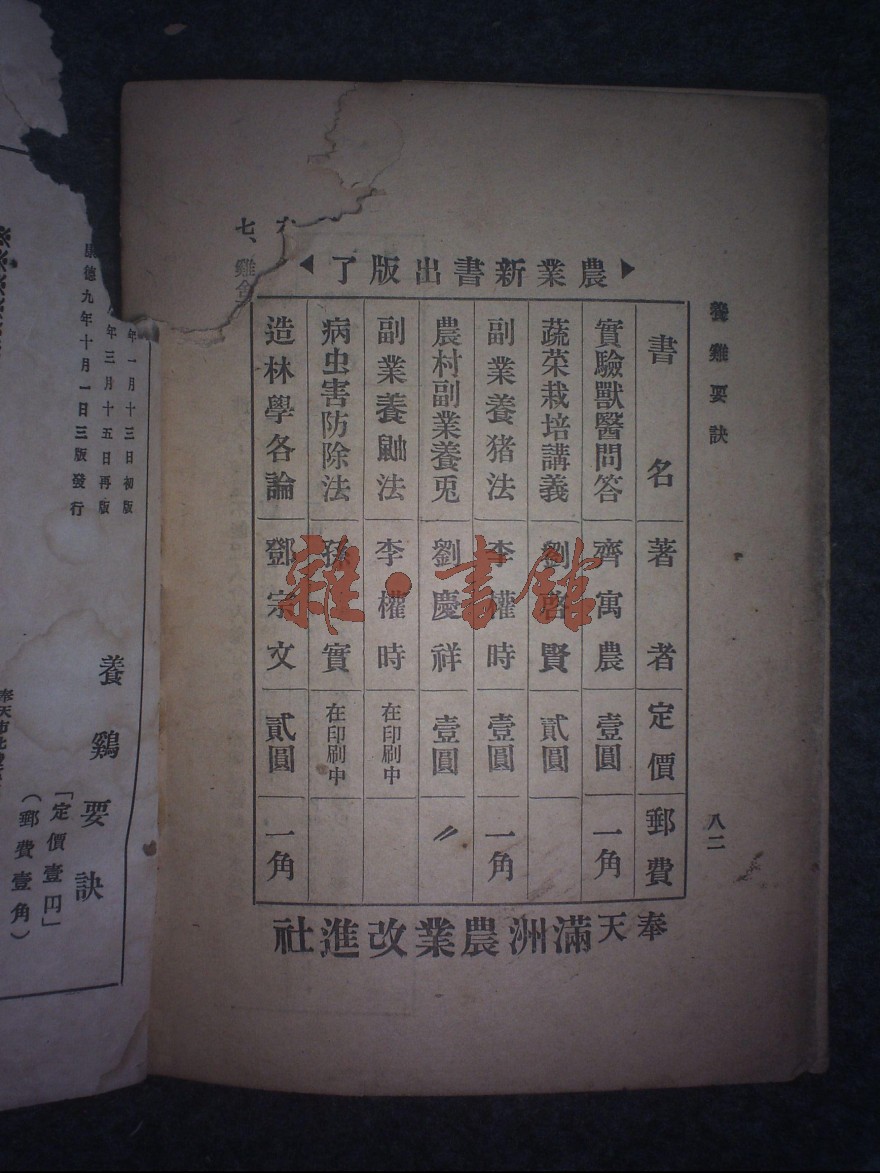 養雞要訣
八二
農業新書出版了
書名 著者 定價 郵費
實驗獸醫問答 齊寓農 壹圓 一角
蔬菜栽培講義 劉啓賢 貳圓
副業養猪法 李權時 壹圓 一角
農村副業養兎 劉慶祥 壹圓 〃
副業養鼬法 李權時 在印刷中
病虫害防除法 孫實 在印刷中
造林學各論 鄧宗文 貳圓 一角
奉天滿洲農業改進社
七、雞舍
雜·書館
年一月十三日初版
年三月十五日再版
康德九年十月一日三版發行
養鷄要訣
「定價壹円」
（郵費壹角）
奉天市北